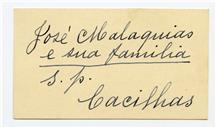 José Malaquias
e sua familia
s. p.
Cacilhas